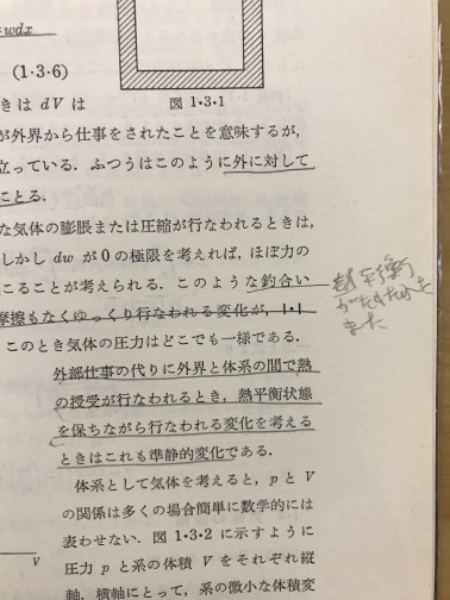 =wdx
(1・3・6)
きは dV は
図 1・3・1
が外界から仕事をされたことを意味するが,
立っている. ふつうはこのように外に対して
ことる.
な気体の膨脹または圧縮が行なわれるときは,
しかし dw が0の極限を考えれば, ほぼ力の
こることが考えられる. このような釣合い
平衡
摩擦もなくゆっくり行なわれる変化が, 1・1
このとき気体の圧力はどこでも一様である.
外部仕事の代りに外界と体系の間で熱
の授受が行なわれるとき, 熱平衡状態
を保ちながら行なわれる変化を考える
ときはこれも準静的変化である.
体系として気体を考えると, p と V
の関係は多くの場合簡単に数学的には
表わせない. 図 1・3・2 に示すように
V
圧力 p と系の体積 V をそれぞれ縦
軸, 横軸にとって, 系の微小な体積変